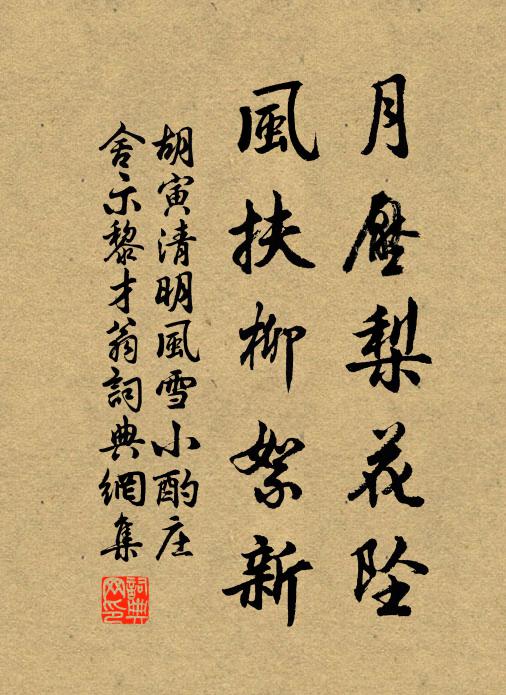 月壓梨花坠
風扶柳絮新
胡寅清明風雪小酌庄
舍示黎才翁詞典網集
詞典网印